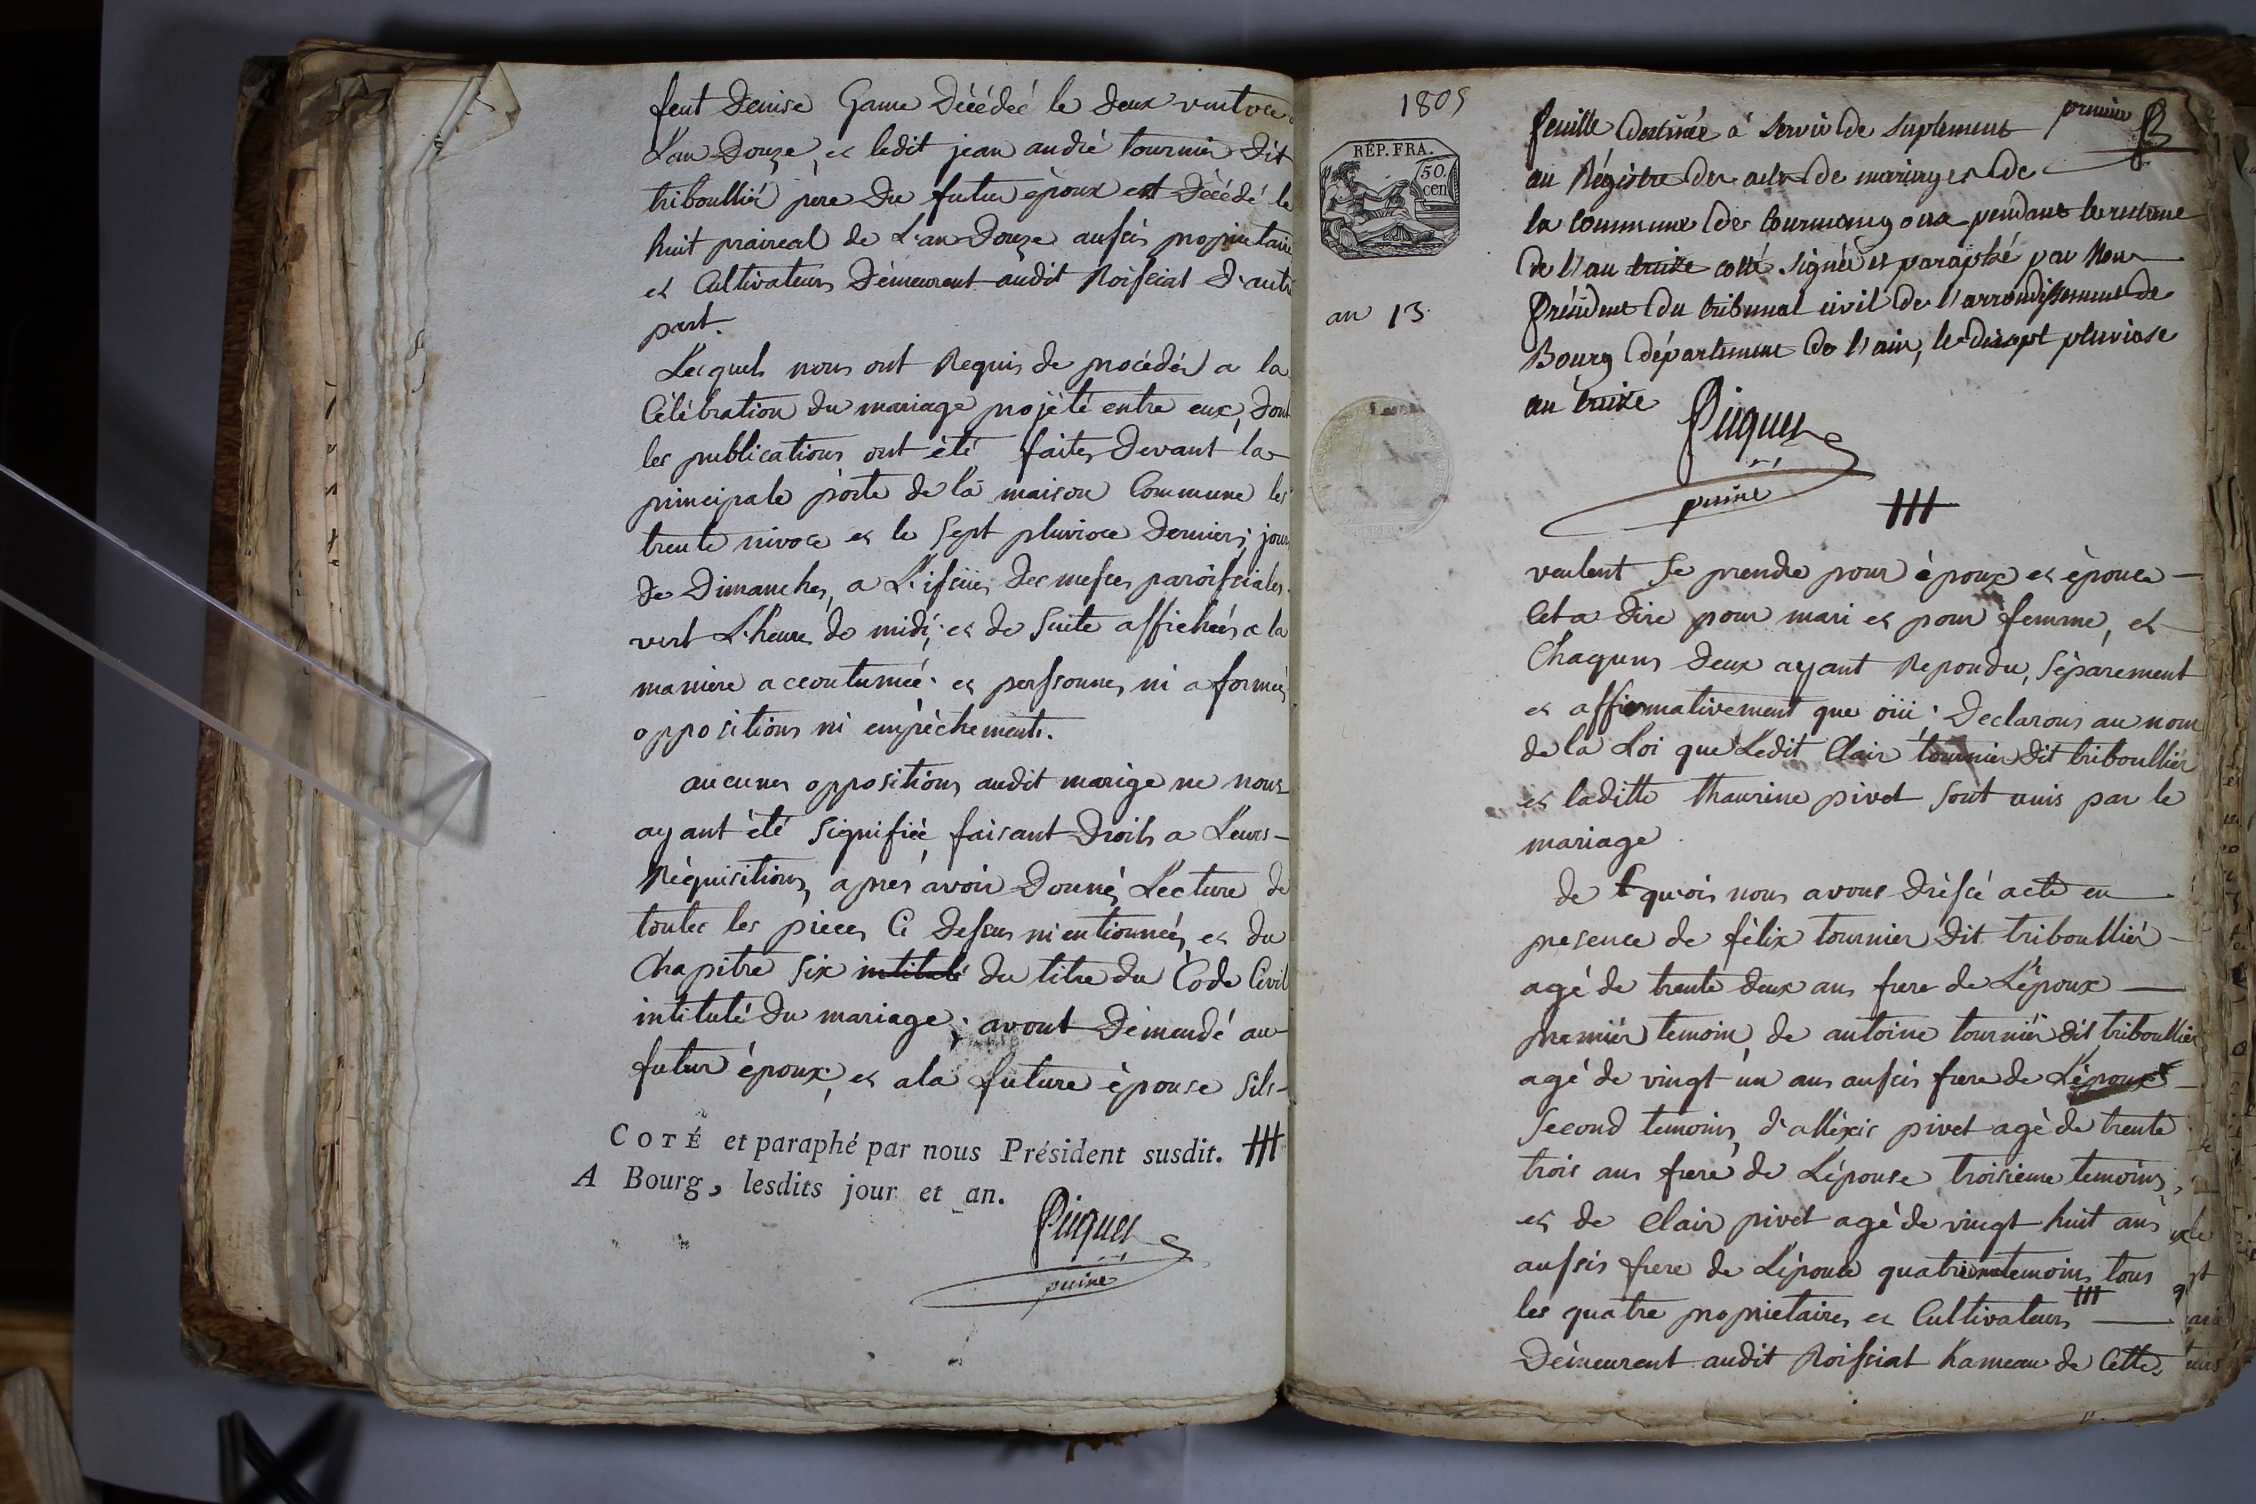 feut Denise Game Décédeé le deux vintoce
L'an Douze, et ledit jean andré tournier dit
triboullier père du futur époux est Décédé le
huit praireal de L'an Douze aussis proprietaire
et Cultivateurs Démeurent audit Roissiat D'autre
part.
Lesquels nous ont Requis de procéder a la
Célébration du mariage projété entre eux, dont
les publications ont été faites Devant la
principale porte de la maison Commune les
trente nivoce et le sept pluvioce Derniers, jour
de Dimanches, a L'issüe des messes paroissiales
vert L'heure de midi, et de suite affichées a la
maniere accoutumée. et perssonnes ni a formée
oppositions ni empèchements.
aucunes oppositions audit marige ne nous
ayant été signifiée faisant Droits a Leurs
Réquisitions, aprés avoir Donné Lecture de
toutes les pieces Ci Dessus mentionnées et du
Chapitre six intitulé du titre du Code Civil
intitulé du mariage, avont Démendé au
futur époux, et ala future épouse sils
COTÉ et paraphé par nous Président susdit.
A Bourg, lesdits jour et an.
Piquet
puiné
1805
RÉP. FRA.
50.
cen
an 13
premier
feuille destinée à servir de suplement
au Régistre des actes de mariages de
la commune de tournous pendant le restant
de l'an treize cotté signée et paraphé par Nous
Président du tribunal civil de l'arrondissement de
Bourg département de l'ain, le dixsept pluviose
an treize
Piquet
puiné
veulent se prendre pour époux et épouce
Cet a dire pour mari et pour femme, et
Chaquns deux ayant Repondu, séparement
et affirmativement que oüi. Declarons au nom
de la Loi que Ledit Clair tournier dit triboullier
et laditte thaurine pivet sont unis par le
mariage
de quois nous avons dréssé acte en
presence de félix tournier dit triboullier
agé de trente deux ans frere de L'époux
premiér temoin, de antoine tourniér dit triboullier
agé de vingt un ans aussis frere de L'époux
second temoins, d'alléxis pivet agé de trente
trois ans frere de L'épouse troisieme temoins,
et de Clair pivet agé de vingt huit ans
aussis frere de L'épouce quatrieme temoins tous
les quatre proprietaires et Cultivateurs
Démeurent audit Roissiat hameau de Cette